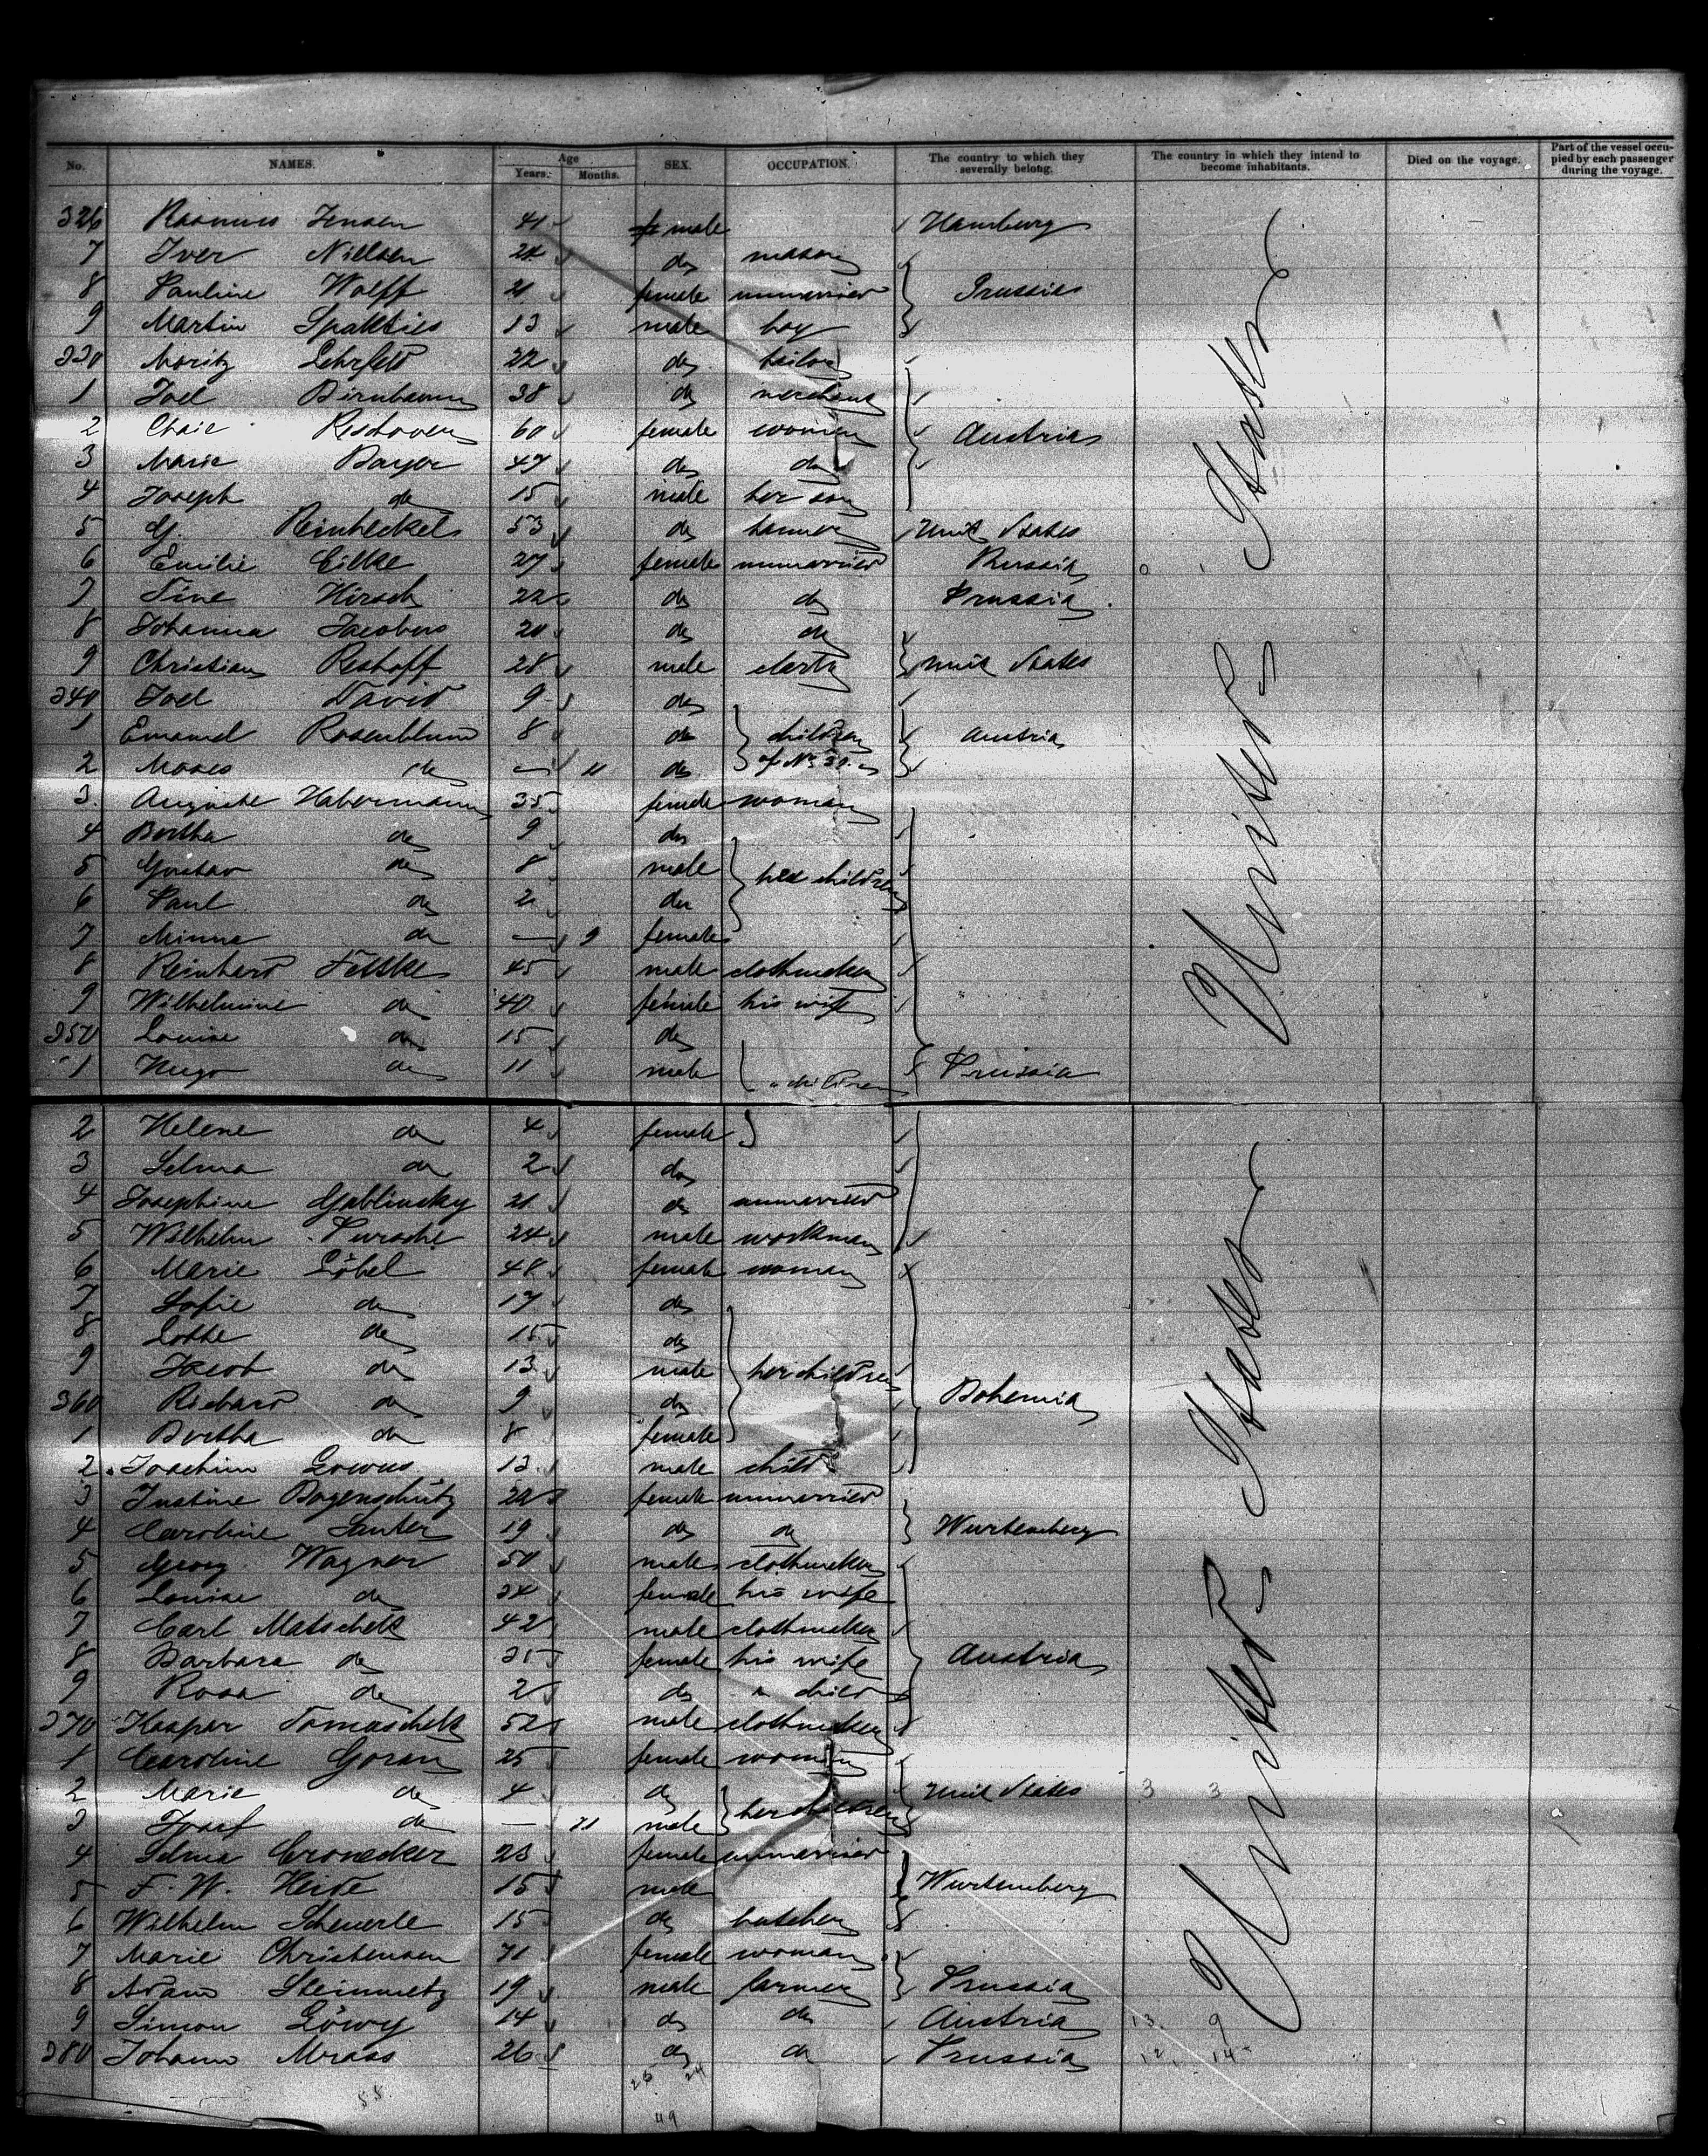 No. NAMES. Age Years. Months. SEX. OCCUPATION. The country to which they severally belong. The country in which they intend to become inhabitants. Died on the voyage. Part of the vessel occupied by each passenger during the voyage.
326 Rasmus Jensen 41 male Hamburg
7 Iver Nielsen 24 do mason
8 Pauline Wolff 21 female unmarried Prussia
9 Martin 13 male boy
330 Moritz Lehrfeld 22 do tailor
1 Joel Birnbaum 38 do merchant
2 Chaie 60 female woman Austria
3 Marie Bayer 47 do do
4 Joseph do 15 male her son
5 G. Reinheckel 53 do Unit States
6 Emilie Eilke 27 female unmarried Russia
7 Tine Hirsch 22 do do Prussia
8 Johanna Jacobus 20 do do
9 Christian Reshoff 28 male clerk Unit States
340 Joel David 9 do
1 Emanuel Rosenblum 8 do children Austria
2 Moses do — 11 do of No
3 Auguste Habermann 35 female woman
4 Bertha do 9 do
5 Gustav do 8 male her children
6 Paul do 2 do
7 Minna do — 9 female
8 Reinhard Felske 45 male clothmaker
9 Wilhelmine do 40 female his wife
350 Louise do 15 do
1 Hugo do 11 male " children Prussia
2 Helene do 4 female
3 Selma do 2 do
4 Josephine Gablinsky 21 do unmarried
5 Wilhelm Pursche 24 male workman
6 Marie Löbel 48 female woman
7 Sofie do 17 do
8 Lotte do 15 do
9 Jacob do 13 male her children
360 Richard do 9 do Bohemia
1 Bertha do 8 female
2 Joachim Lowus 13 male child
3 Justine Bogenschütz 22 female unmarried
4 Caroline Sauter 19 do do Wurtemberg
5 Georg Wagner 50 male clothmaker
6 Louise do 34 female his wife
7 Carl Matschek 42 male clothmaker
8 Barbara do 35 female his wife Austria
9 Rosa do 2 do " child
370 Kaspar Tomaschek 52 male clothmaker
1 Caroline Goran 25 female woman
2 Marie do 4 do her children Unit States 3 3
3 Josef do — 11 male
4 Selma Cronecker 23 female unmarried
5 F. W. Heide 15 male Wurtemberg
6 Wilhelm Scheuerle 15 do butcher
7 Marie Christensen 71 female woman
8 Adam Steinmetz 19 male farmer Prussia
9 Simon Löwy 14 do do Austria 13 9
380 Johann Mrass 26 do do Prussia 12 14
United States
United States
49